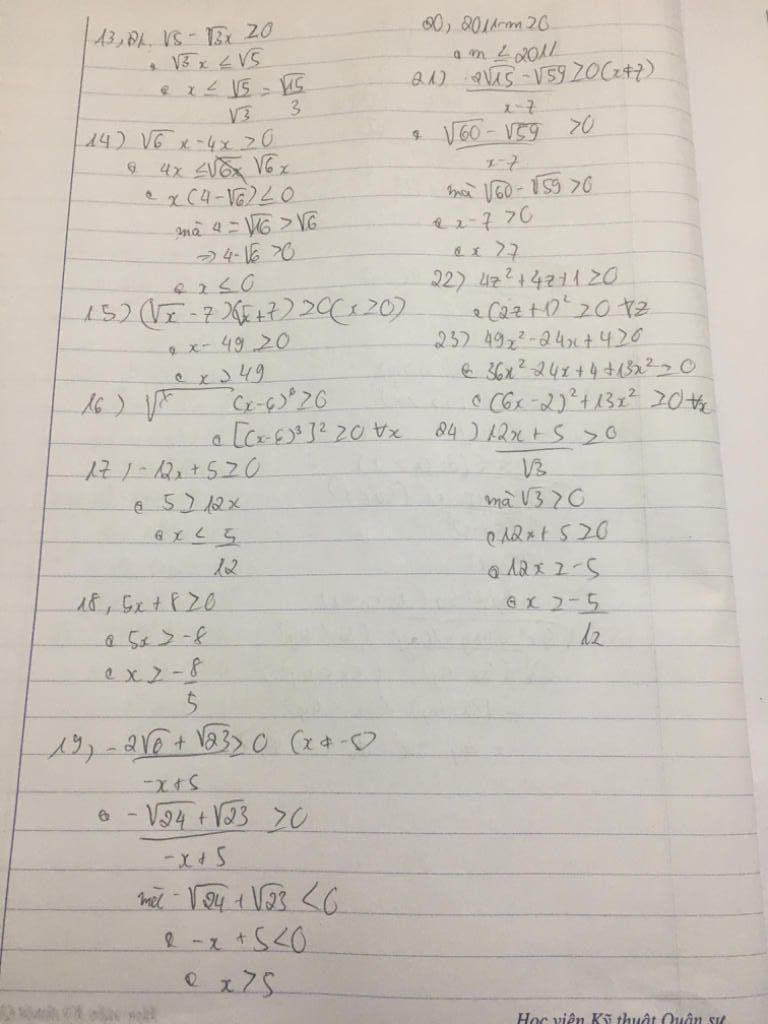 13, Đk √5 - √3x ≥0
⇔ √3 x ≤ √5
⇔ x ≤ √5/√3 = √15/3
14) √6 x - 4x ≥0
⇔ 4x ≤ √6x
⇔ x(4-√6) ≤ 0
mà 4 = √16 > √6
⇒ 4-√6 >0
⇔ x ≤ 0
15) (√x - 7)(√x+7) ≥0 (x ≥0)
⇔ x - 49 ≥0
⇔ x ≥ 49
16) (x-6)⁶ ≥0
⇔ [(x-6)³]² ≥0 ∀x
17) -12x + 5 ≥0
⇔ 5 ≥ 12x
⇔ x ≤ 5/12
18, 5x + 8 ≥0
⇔ 5x ≥ -8
⇔ x ≥ -8/5
19, (-2√6 + √23)/(-x+5) ≥ 0 (x ≠ -5)
⇔ (-√24 + √23)/(-x+5) ≥0
mà -√24 + √23 <0
⇔ -x + 5 <0
⇔ x > 5
20, 2011-m ≥0
⇔ m ≤ 2011
21) (2√15 - √59)/(x-7) ≥0 (x≠7)
⇔ (√60 - √59)/(x-7) ≥0
mà √60 - √59 >0
⇔ x-7 >0
⇔ x >7
22) 4z² + 4z+1 ≥0
⇔ (2z+1)² ≥0 ∀z
23) 49x² -24x + 4 ≥0
⇔ 36x² -24x + 4 + 13x² ≥0
⇔ (6x-2)² + 13x² ≥0 ∀x
24) (12x + 5)/√3 ≥0
mà √3 >0
⇔ 12x + 5 ≥0
⇔ 12x ≥ -5
⇔ x ≥ -5/12
Học viện Kỹ thuật Quân sự